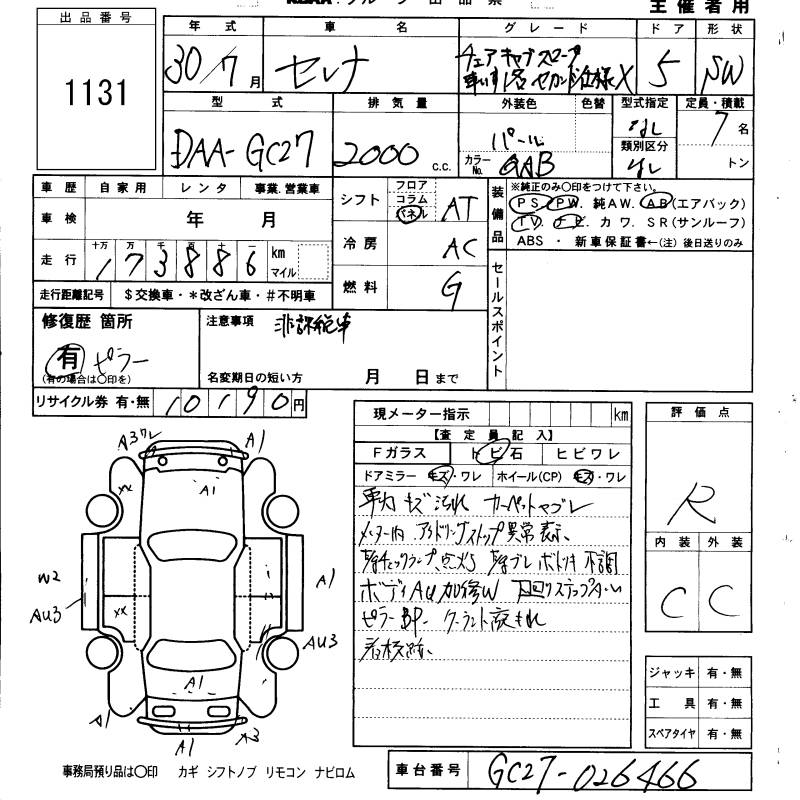 主催者用
出品番号
1131
年式 車名 グレード ドア 形状
30/7月 セレナ チェアキャブスロープ 5 SW
車いす1名 セカンド仕様 X
型式 排気量 外装色 色替 型式指定 定員・積載
DAA-GC27 2000 c.c. パール なし 7名
カラーNo. QAB 類別区分 なし トン
車歴 自家用 レンタ 事業.営業車
車検 年 月
走行 十万 万 千 百 十 一
173886 km マイル
走行距離記号 $交換車・*改ざん車・#不明車
シフト フロア コラム パネル AT
冷房 AC
燃料 G
装備品
※純正のみ〇印をつけて下さい。
PS PW. 純AW. AB(エアバック)
TV. ナビ. カワ. SR(サンルーフ)
ABS ・ 新車保証書←(注) 後日送りのみ
セールスポイント
修復歴 箇所
有 ピラー
(有の場合は〇印を)
注意事項 非課税車
名変期日の短い方 月 日まで
リサイクル券 有・無 10190円
現メーター指示 km
【査定員記入】
Fガラス トビ石 ヒビワレ
ドアミラー キズ・ワレ ホイール(CP) キズ・ワレ
車内キズ汚れ カーペットヤブレ
メーター内 アイドリングストップ異常表示、
ボディAU加修W 下回りステップA・U
ピラーBP- クーラント液もれ
看板跡、
評価点
R
内装 外装
C C
ジャッキ 有・無
工具 有・無
スペアタイヤ 有・無
A3ワレ A1
A1
XX
W2 A1
AU3 XX AU3
A1
A1 A1 A3
事務局預り品は〇印 カギ シフトノブ リモコン ナビロム
車台番号 GC27-026466